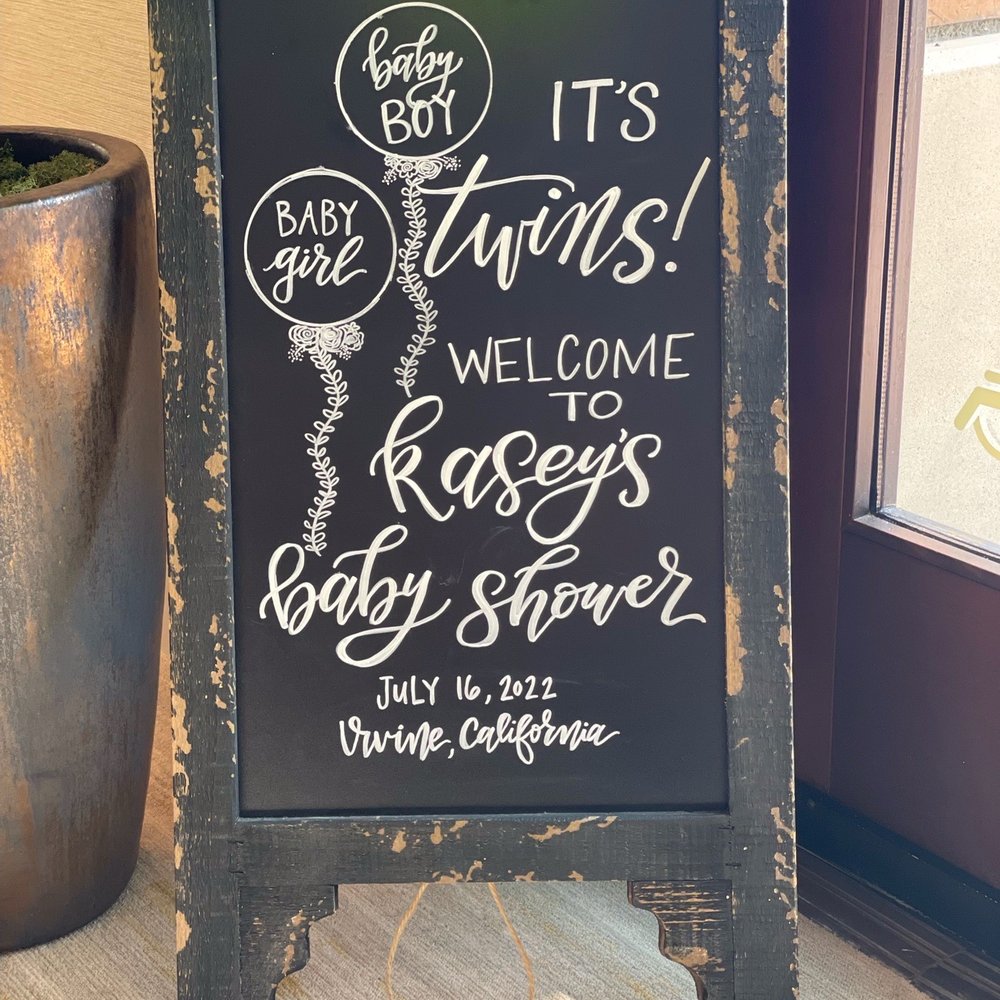 baby
BOY
BABY
girl
IT'S
twins!
WELCOME
TO
kasey's
baby shower
JULY 16, 2022
Irvine, California